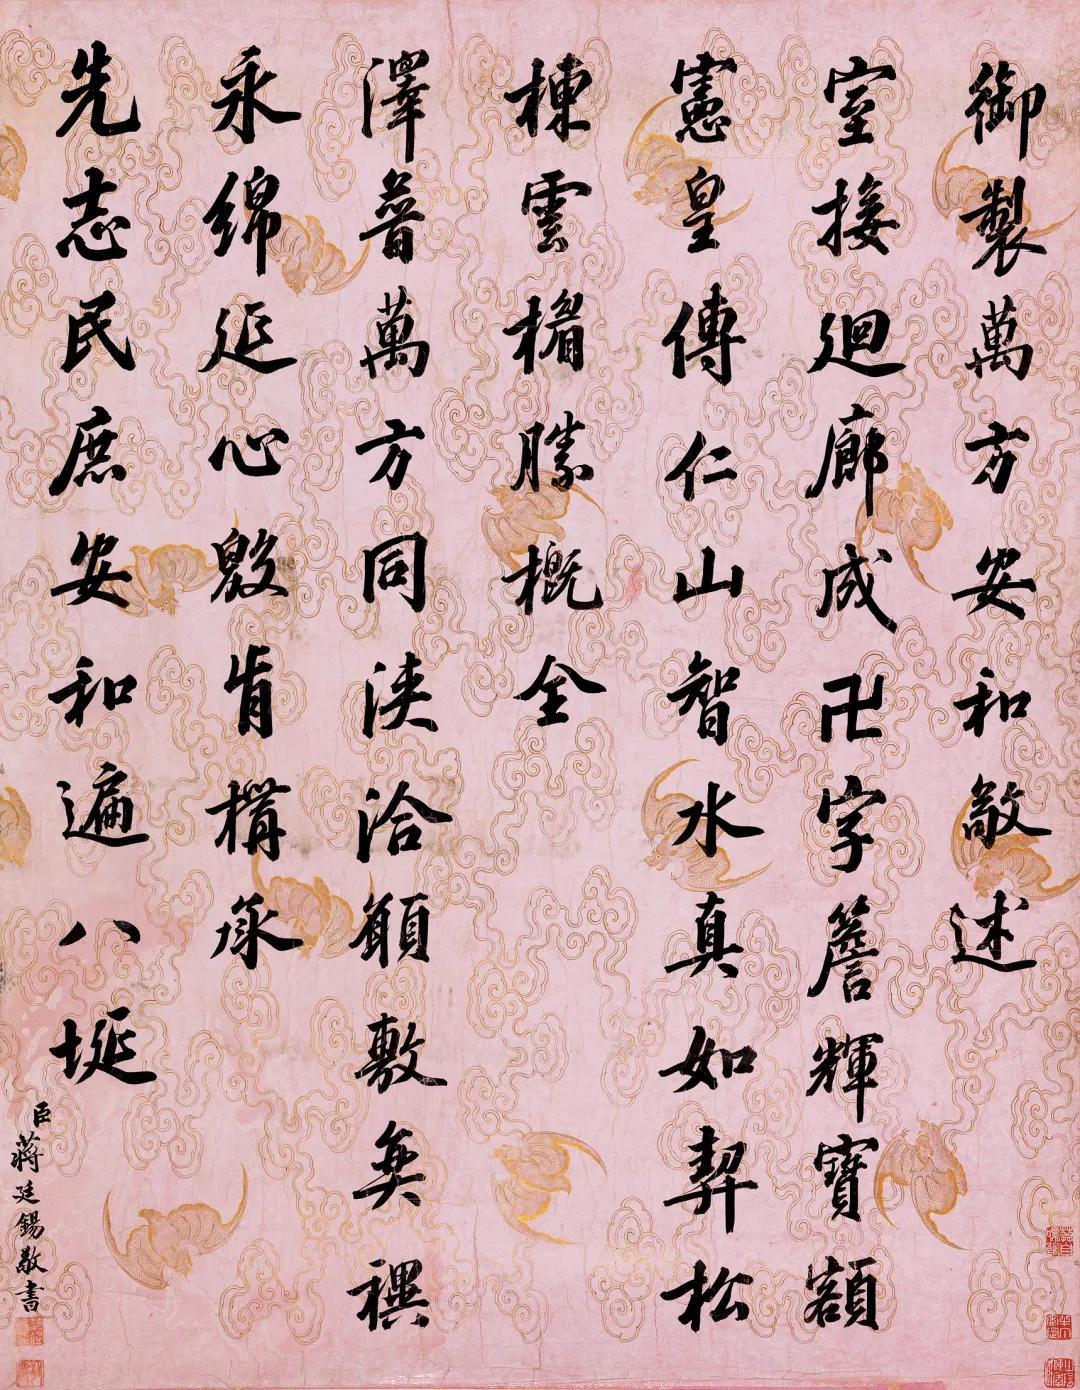 御製萬方安和敬述
室接迴廊成卍字簷輝寶額
憲皇傳仁山智水真如契松
棟雲楣勝概全
澤普萬方同浹洽願敷奕禩
永綿延心殷肯構承
先志民庶安和遍八埏
臣蔣廷錫敬書